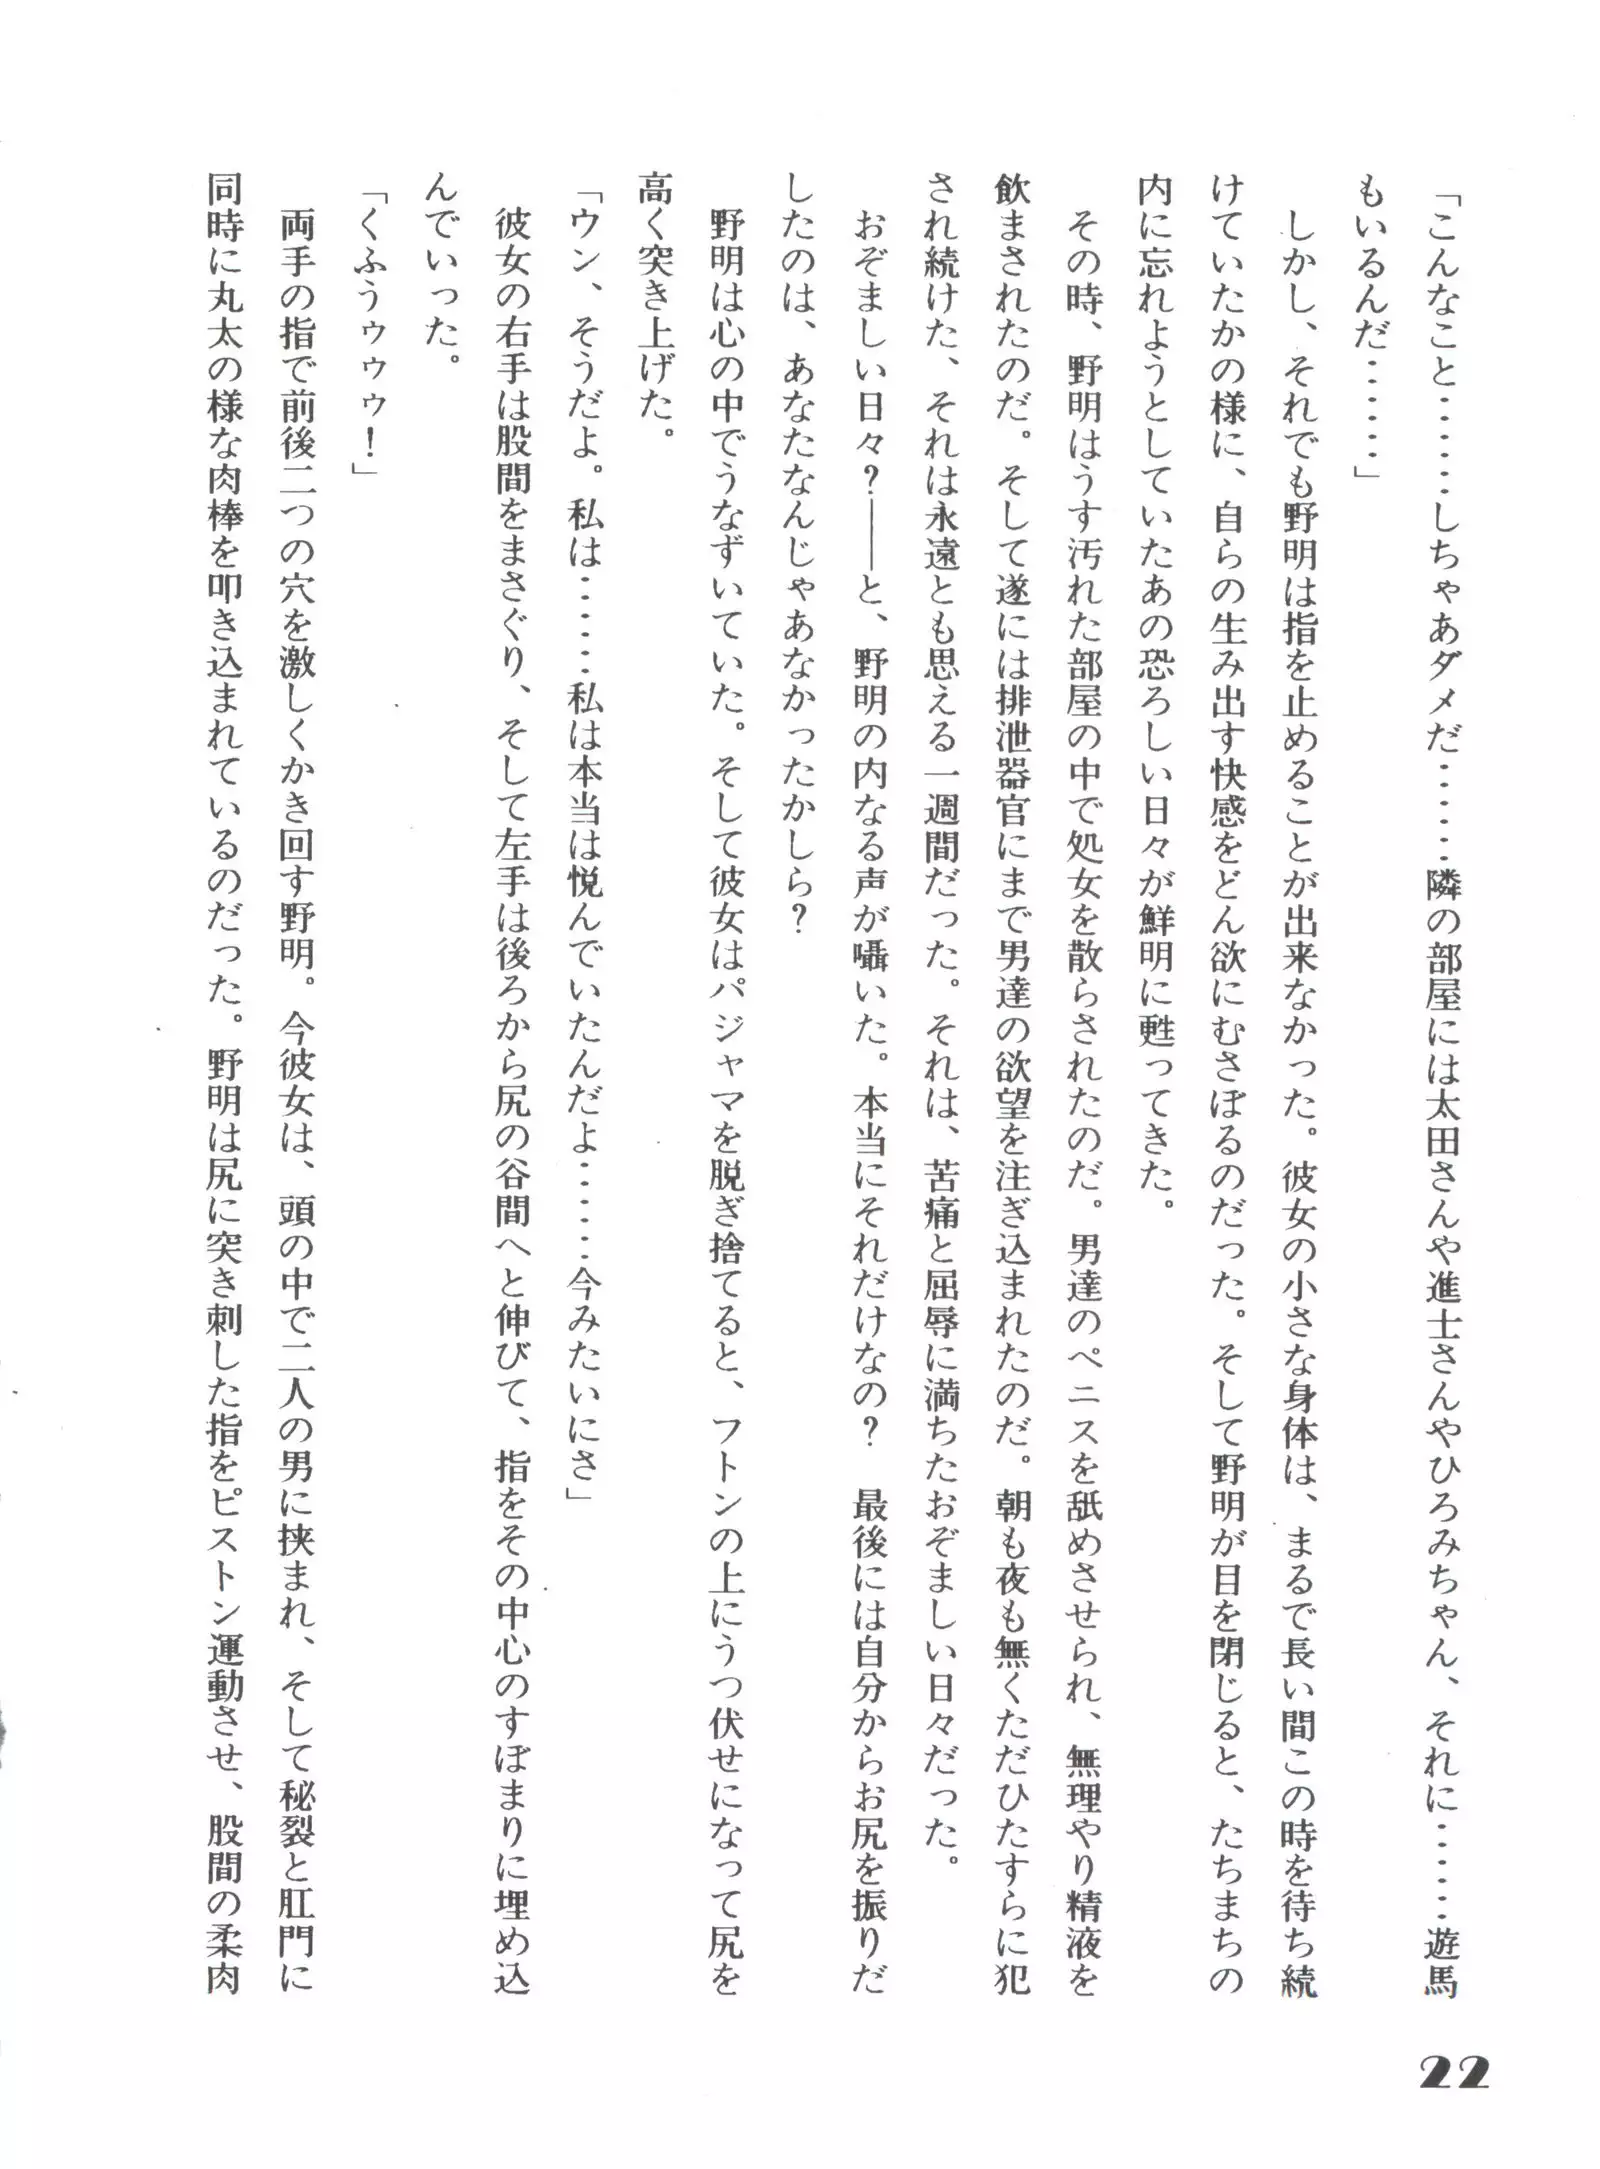 「こんなこと‥‥‥しちゃあダメだ‥‥‥隣の部屋には太田さんや進士さんやひろみちゃん、それに‥‥‥遊馬
もいるんだ‥‥‥」
しかし、それでも野明は指を止めることが出来なかった。彼女の小さな身体は、まるで長い間この時を待ち続
けていたかの様に、自らの生み出す快感をどん欲にむさぼるのだった。そして野明が目を閉じると、たちまちの
内に忘れようとしていたあの恐ろしい日々が鮮明に甦ってきた。
その時、野明はうす汚れた部屋の中で処女を散らされたのだ。男達のペニスを舐めさせられ、無理やり精液を
飲まされたのだ。そして遂には排泄器官にまで男達の欲望を注ぎ込まれたのだ。朝も夜も無くただひたすらに犯
され続けた、それは永遠とも思える一週間だった。それは、苦痛と屈辱に満ちたおぞましい日々だった。
おぞましい日々？――と、野明の内なる声が囁いた。本当にそれだけなの？　最後には自分からお尻を振りだ
したのは、あなたなんじゃあなかったかしら？
野明は心の中でうなずいていた。そして彼女はパジャマを脱ぎ捨てると、フトンの上にうつ伏せになって尻を
高く突き上げた。
「ウン、そうだよ。私は‥‥‥私は本当は悦んでいたんだよ‥‥‥今みたいにさ」
彼女の右手は股間をまさぐり、そして左手は後ろから尻の谷間へと伸びて、指をその中心のすぼまりに埋め込
んでいった。
「くふうゥゥゥ！」
両手の指で前後二つの穴を激しくかき回す野明。今彼女は、頭の中で二人の男に挟まれ、そして秘裂と肛門に
同時に丸太の様な肉棒を叩き込まれているのだった。野明は尻に突き刺した指をピストン運動させ、股間の柔肉
22